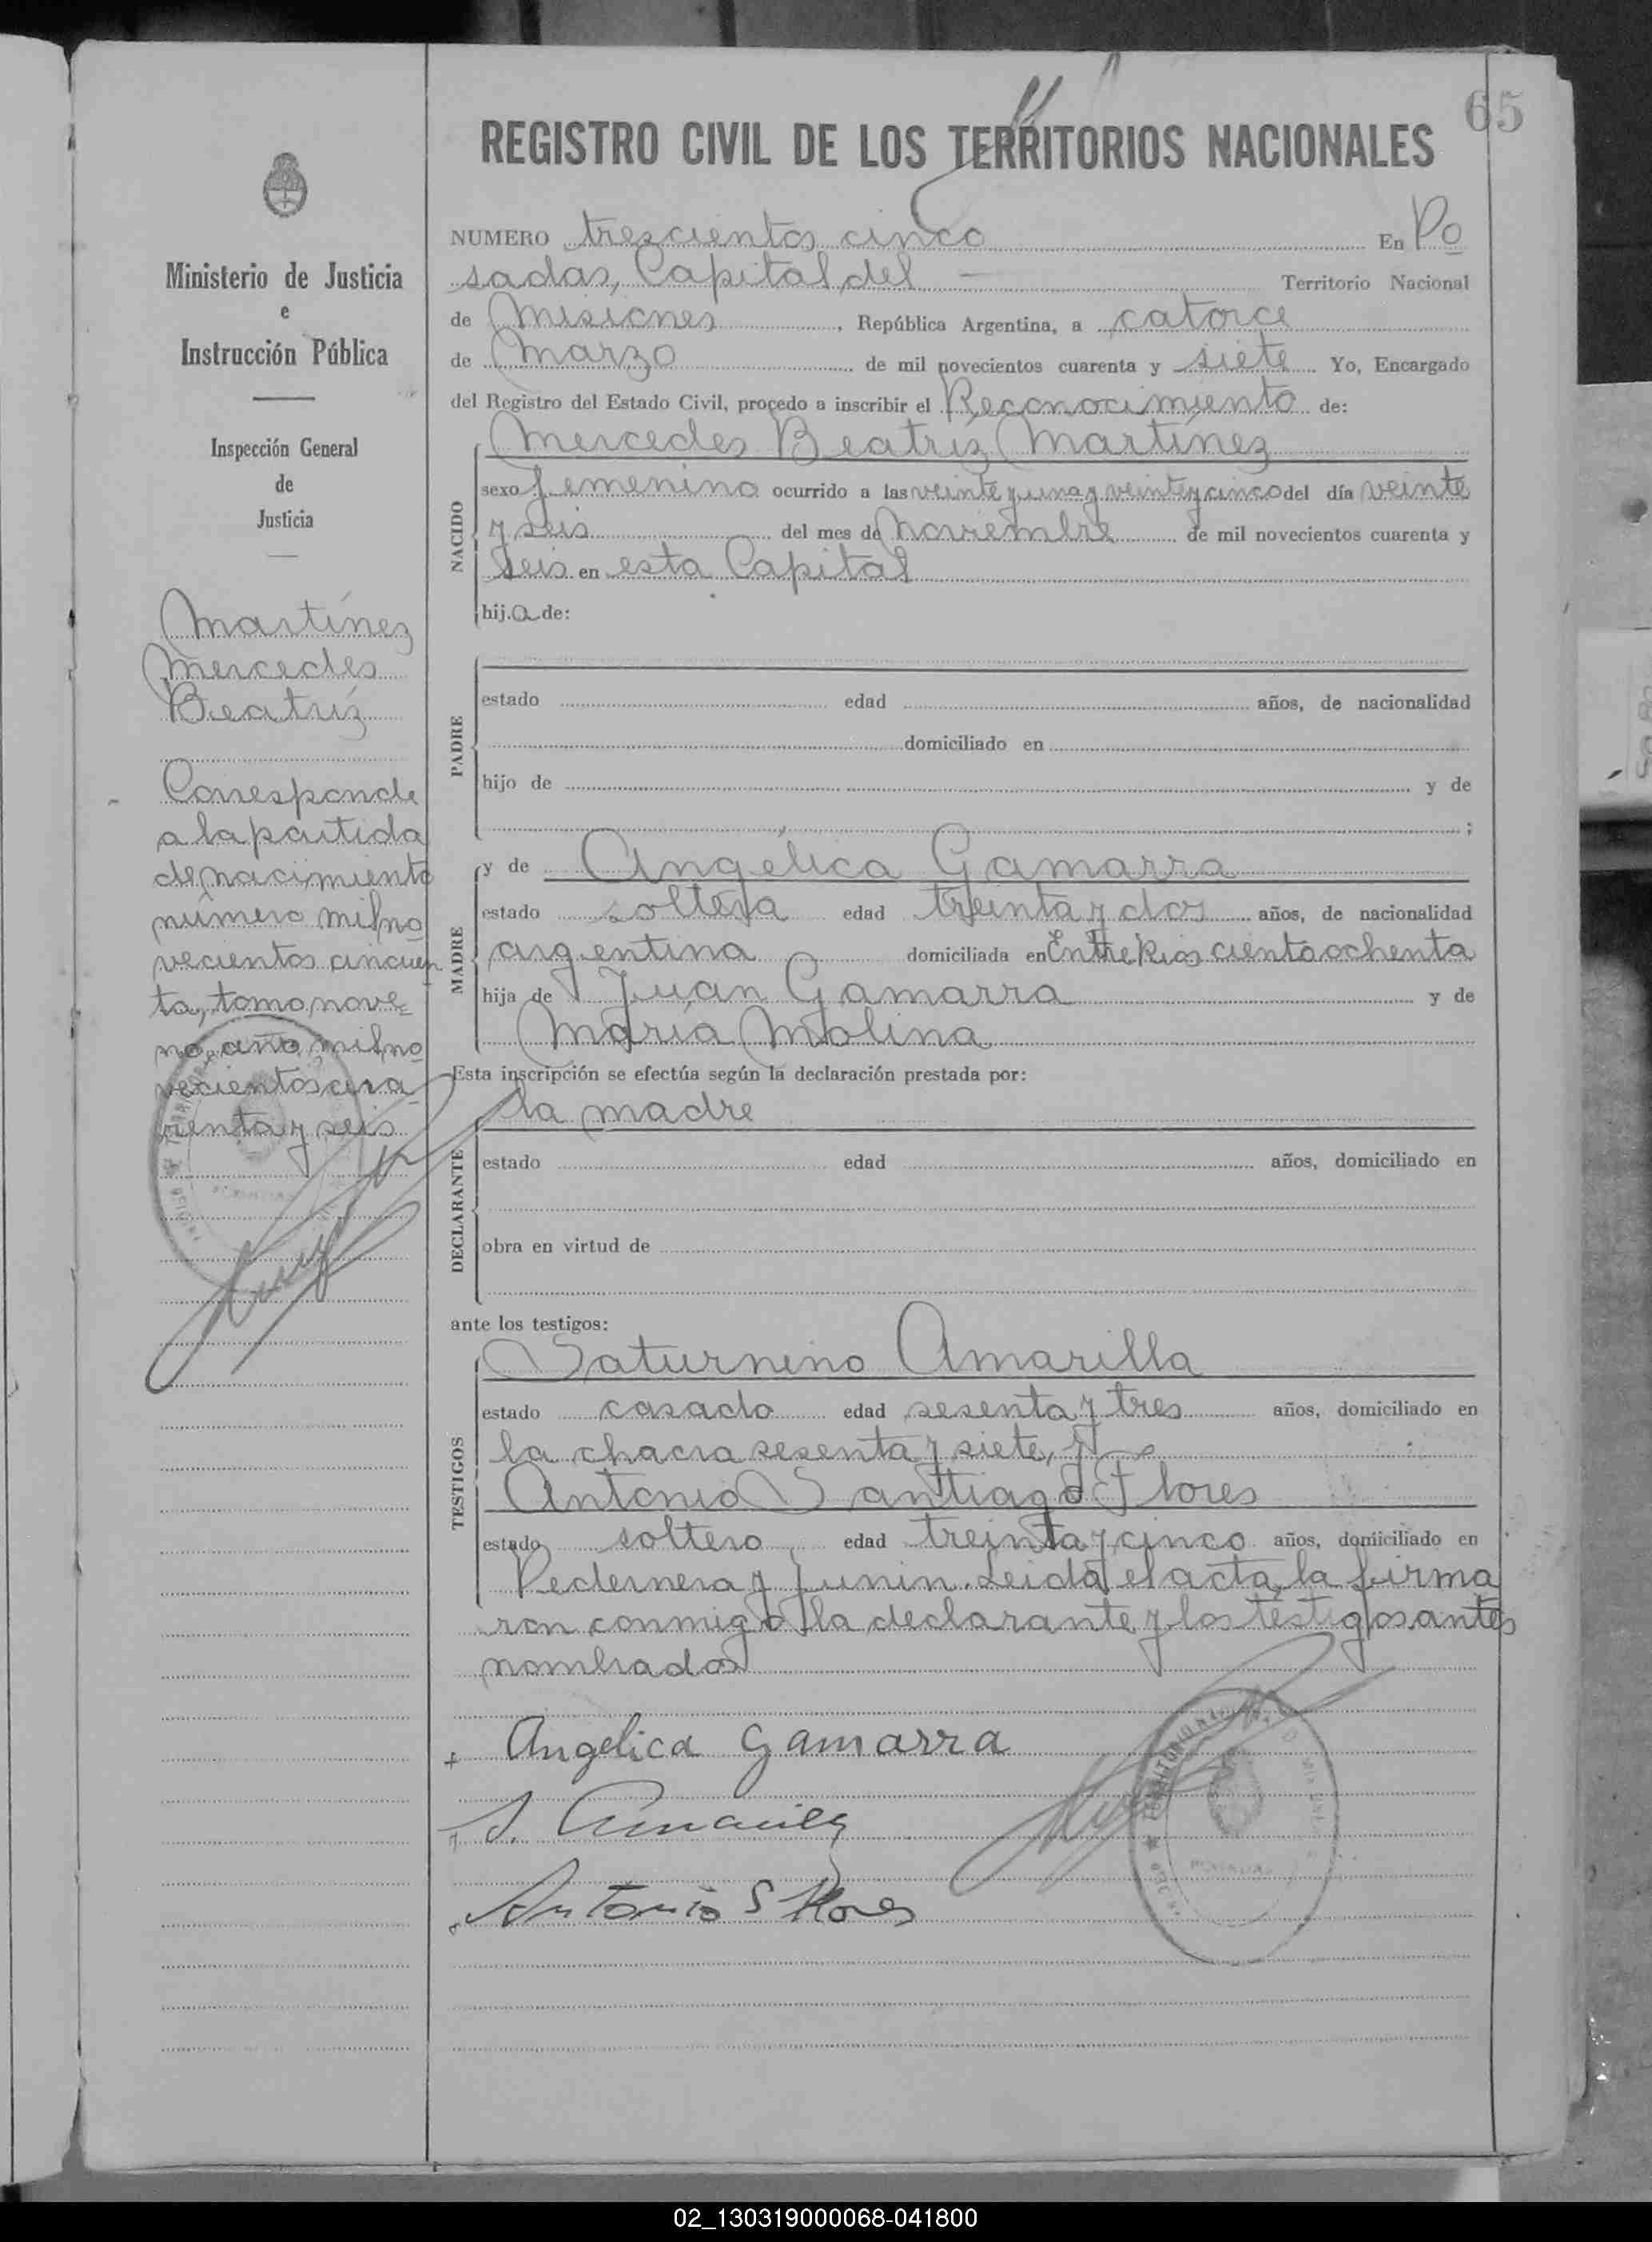 65
REGISTRO CIVIL DE LOS TERRITORIOS NACIONALES
Ministerio de Justicia
e
Instrucción Pública
Inspección General
de
Justicia
Martínez
Mercedes
Beatríz
Corresponde
a la partida
de nacimiento
número mil no
vecientos cincuen
ta, tomo nove
no, año mil no
vecientos cua
renta y seis
NUMERO trescientos cinco En Po
sadas, Capital del — Territorio Nacional
de Misiones, República Argentina, a catorce
de Marzo de mil novecientos cuarenta y siete Yo, Encargado
del Registro del Estado Civil, procedo a inscribir el Reconocimiento de:
NACIDO
Mercedes Beatríz Martínez
sexo femenino ocurrido a las veinte y una y veinte y cinco del día veinte
y seis del mes de Noviembre de mil novecientos cuarenta y
seis en esta Capital
hija de:
PADRE
estado edad años, de nacionalidad
domiciliado en
hijo de y de
;
MADRE
y de Angélica Gamarra
estado soltera edad treinta y dos años, de nacionalidad
argentina domiciliada en Entre Rios ciento ochenta
hija de Juan Gamarra y de
María Molina
Esta inscripción se efectúa según la declaración prestada por:
DECLARANTE
la madre
estado edad años, domiciliado en
obra en virtud de
ante los testigos:
TESTIGOS
Saturnino Amarilla
estado casado edad sesenta y tres años, domiciliado en
la chacra sesenta y siete, y
Antonio Santiago Flores
estado soltero edad treinta y cinco años, domiciliado en
Pedernera y Junin. Leida el acta, la firma
ron conmigo la declarante y los testigos antes
nombrados
Angelica Gamarra
S. Amarilla
Antonio S Flores
02_130319000068-041800